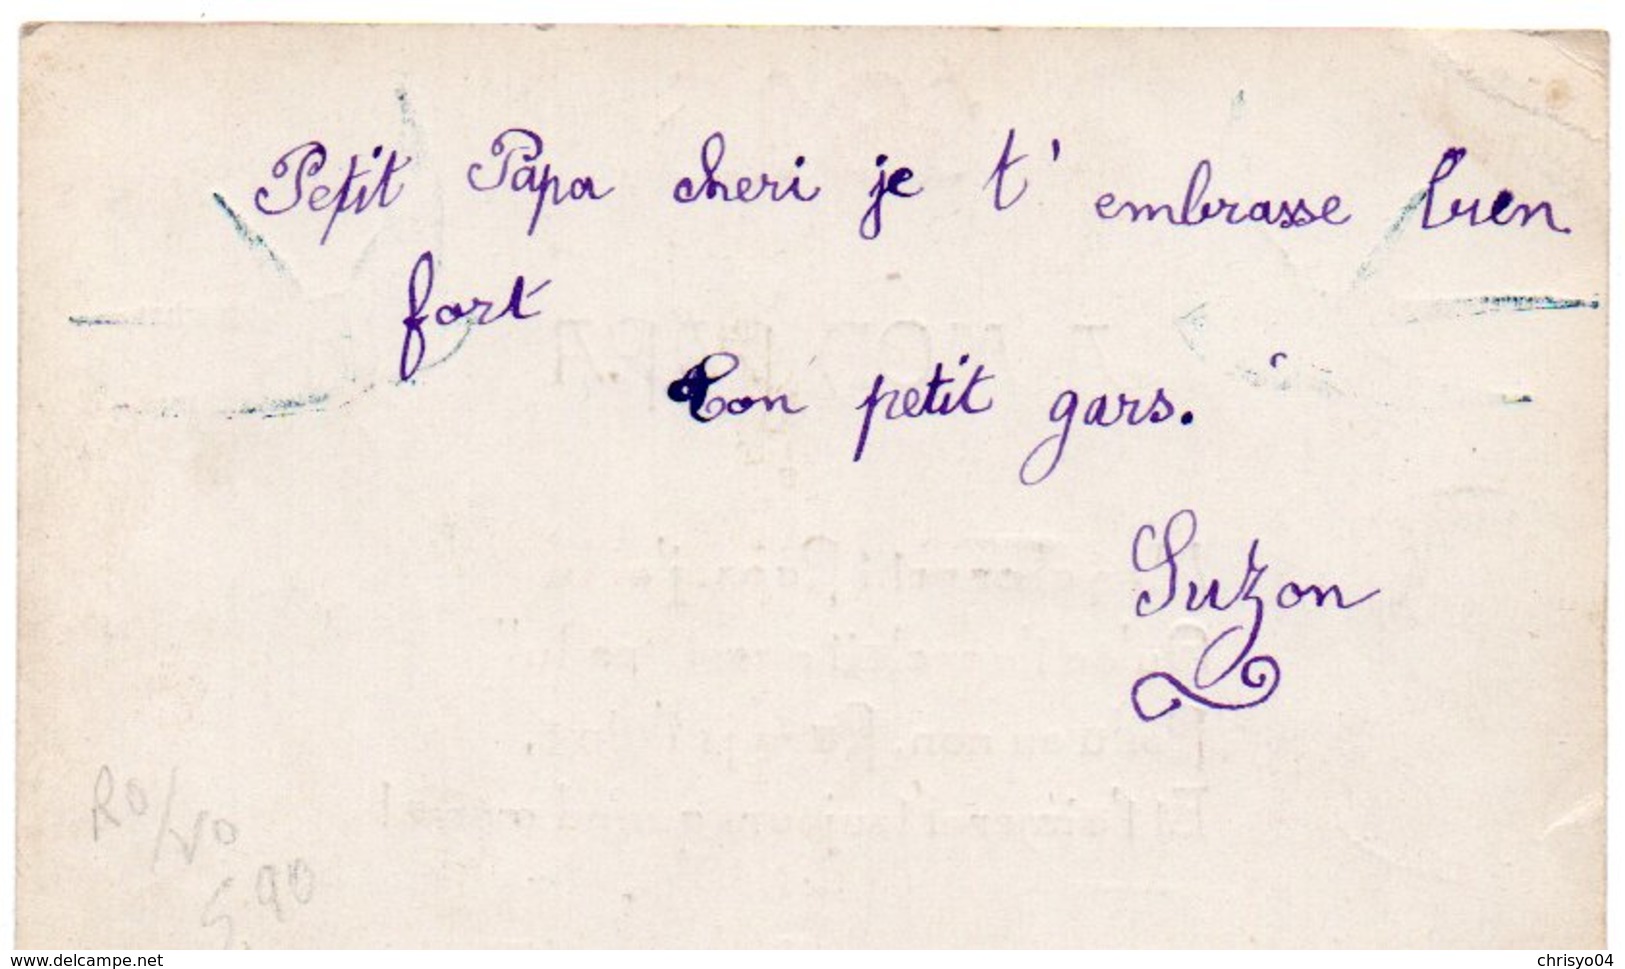 Petit Papa cheri je t' embrasse bien
fort
Ton petit gars.
Suzon
5.90
www.delcampe.net
chrisyo04